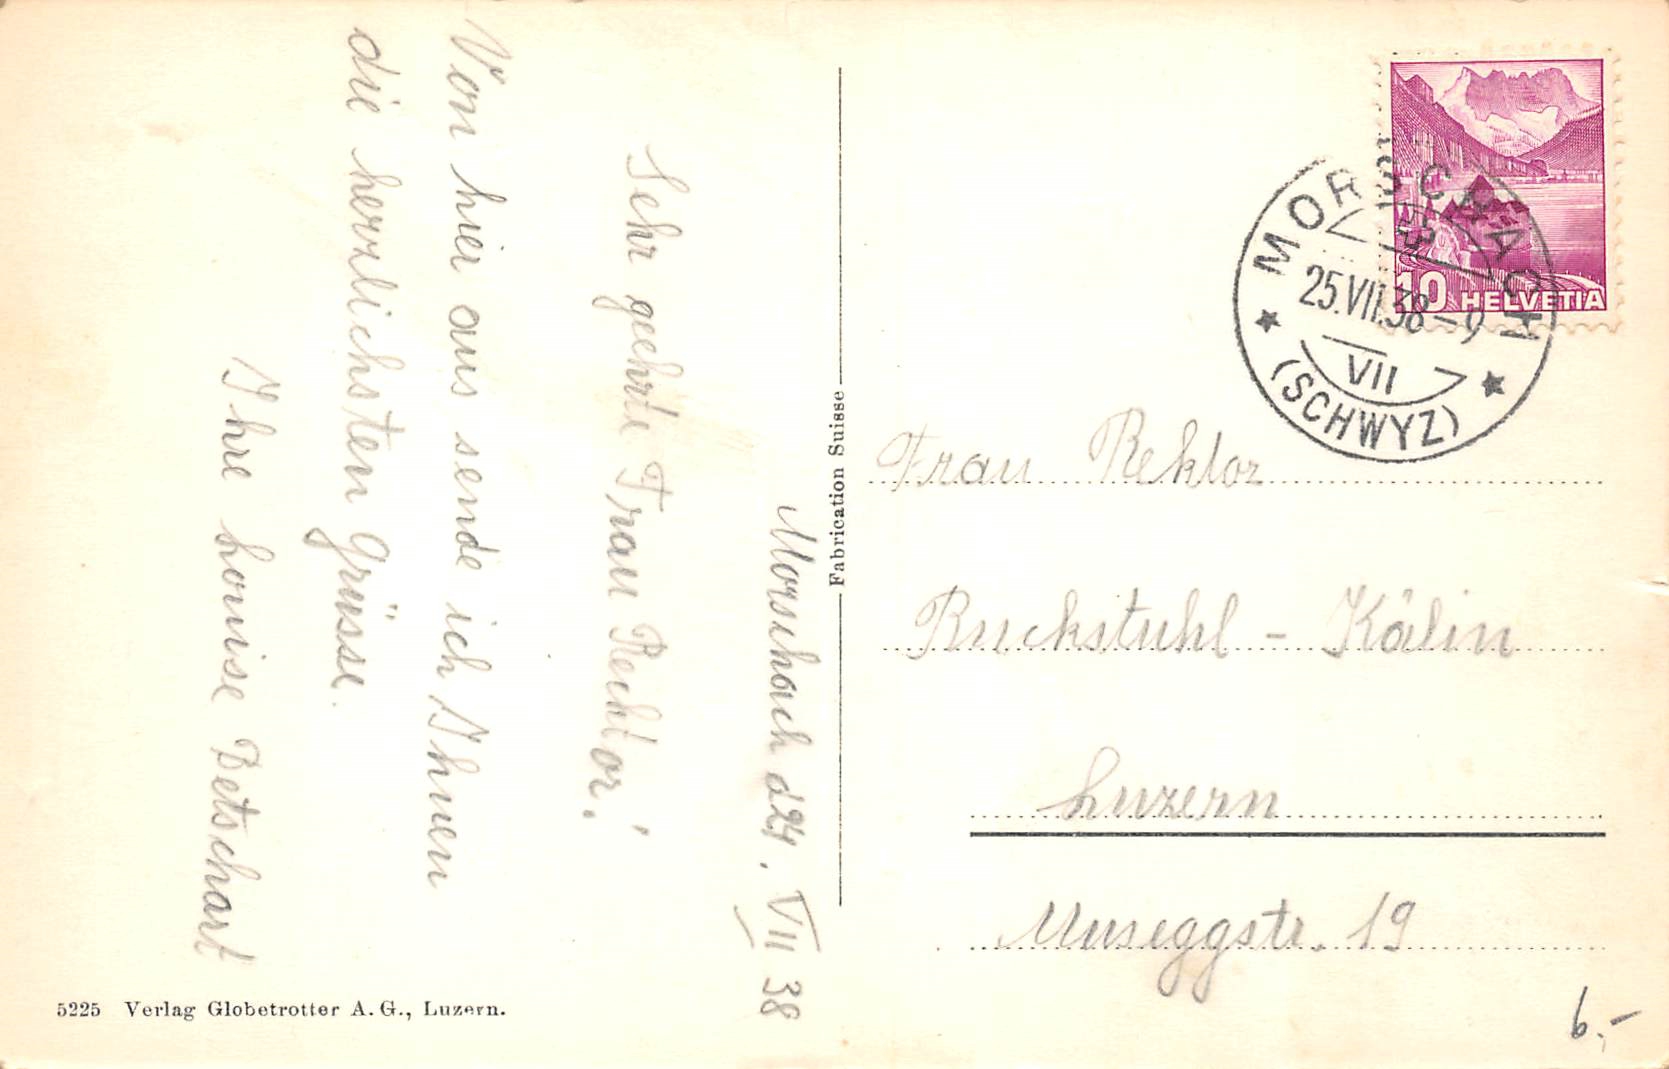 Morschach d 24. VII 38
Sehr geehrte Frau Rechtor!
Von hier aus sende ich Ihnen
die herzlichsten Grüsse.
Ihre Louise Betschart
5225 Verlag Globetrotter A. G., Luzern.
Fabrication Suisse
10 HELVETIA
MORSCHACH
25.VII.38-9
VII
(SCHWYZ)
Frau Rektor
Ruckstuhl - Kälin
Luzern
Museggstr. 19
6.-